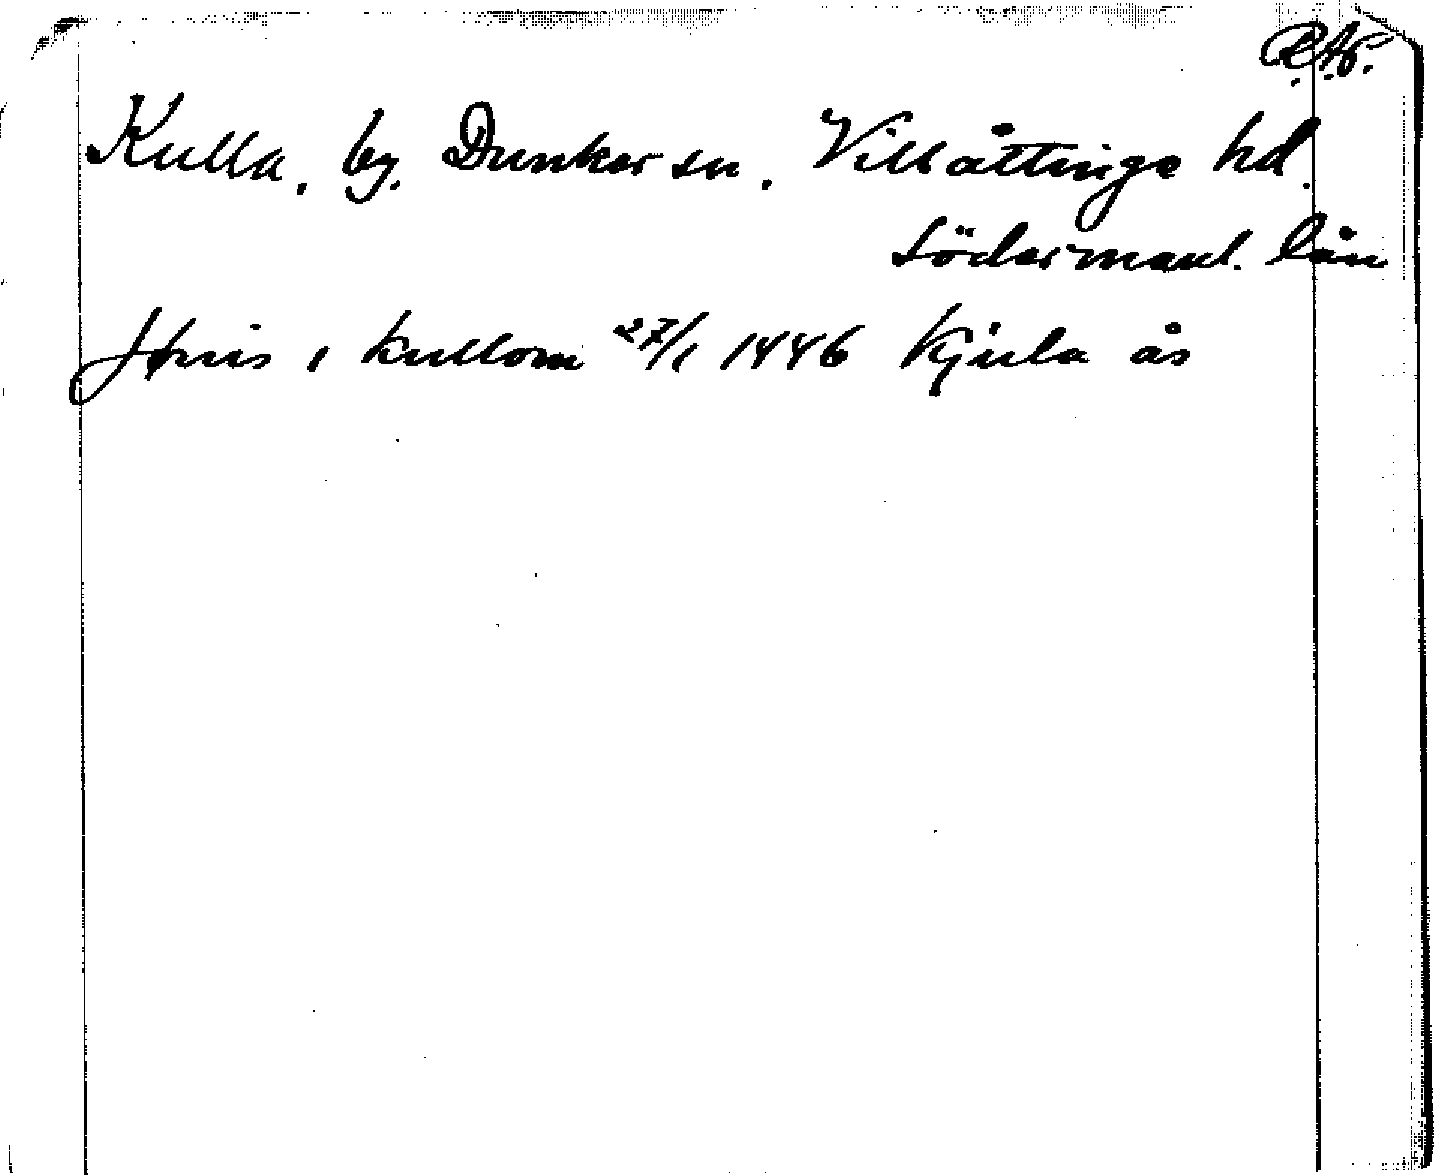 R.A.
Kulla, by. Dunker sn. Villåttinge hd.
Södermanl. län
i kullom 27/1 1446 Kjula ås